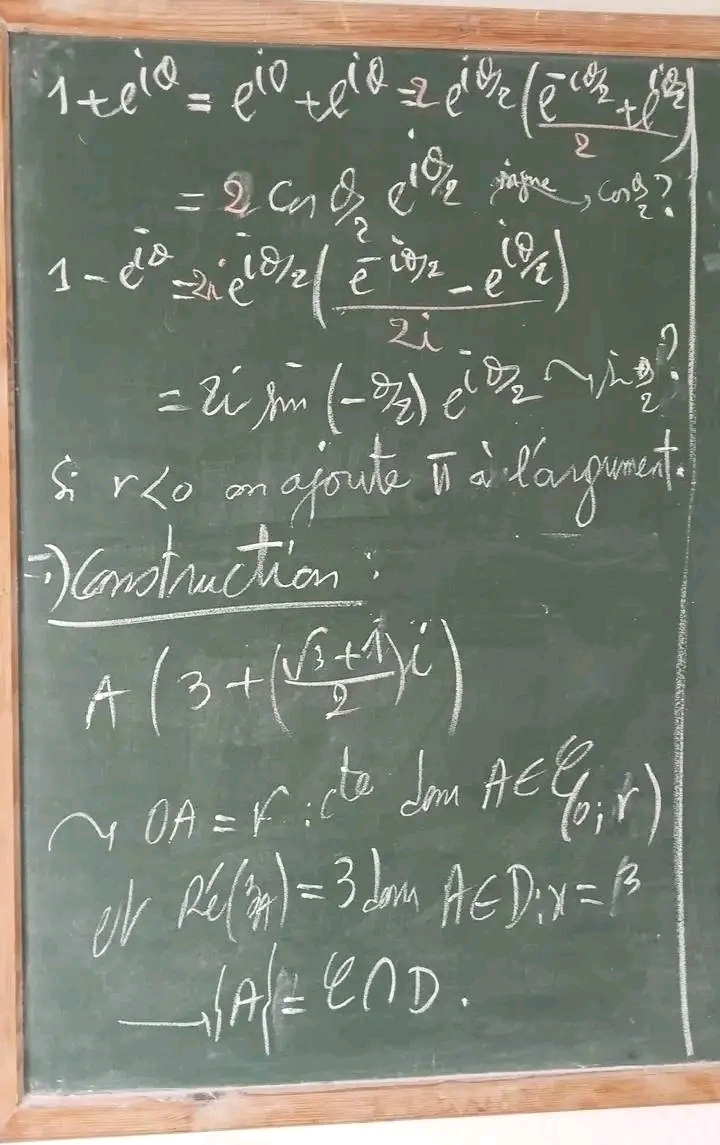 1 + e^{iθ} = e^{i0} + e^{iθ} = 2 e^{iθ/2} ( (e^{-iθ/2} + e^{iθ/2}) / 2 )
= 2 cos θ/2 e^{iθ/2} signe cos θ/2 ?
1 - e^{iθ} = 2i e^{iθ/2} ( (e^{-iθ/2} - e^{iθ/2}) / 2i )
= 2i sin (-θ/2) e^{iθ/2} ↝ sin θ/2 ?
Si r<0 on ajoute π à l'argument.
-) Construction :
A ( 3 + ( (√3 + 1) / 2 ) i )
↝ OA = r : cte donc A ∈ 𝒞(o; r)
et Ré(zA) = 3 donc A ∈ D: x = 3
→ {A} = 𝒞 ∩ D.